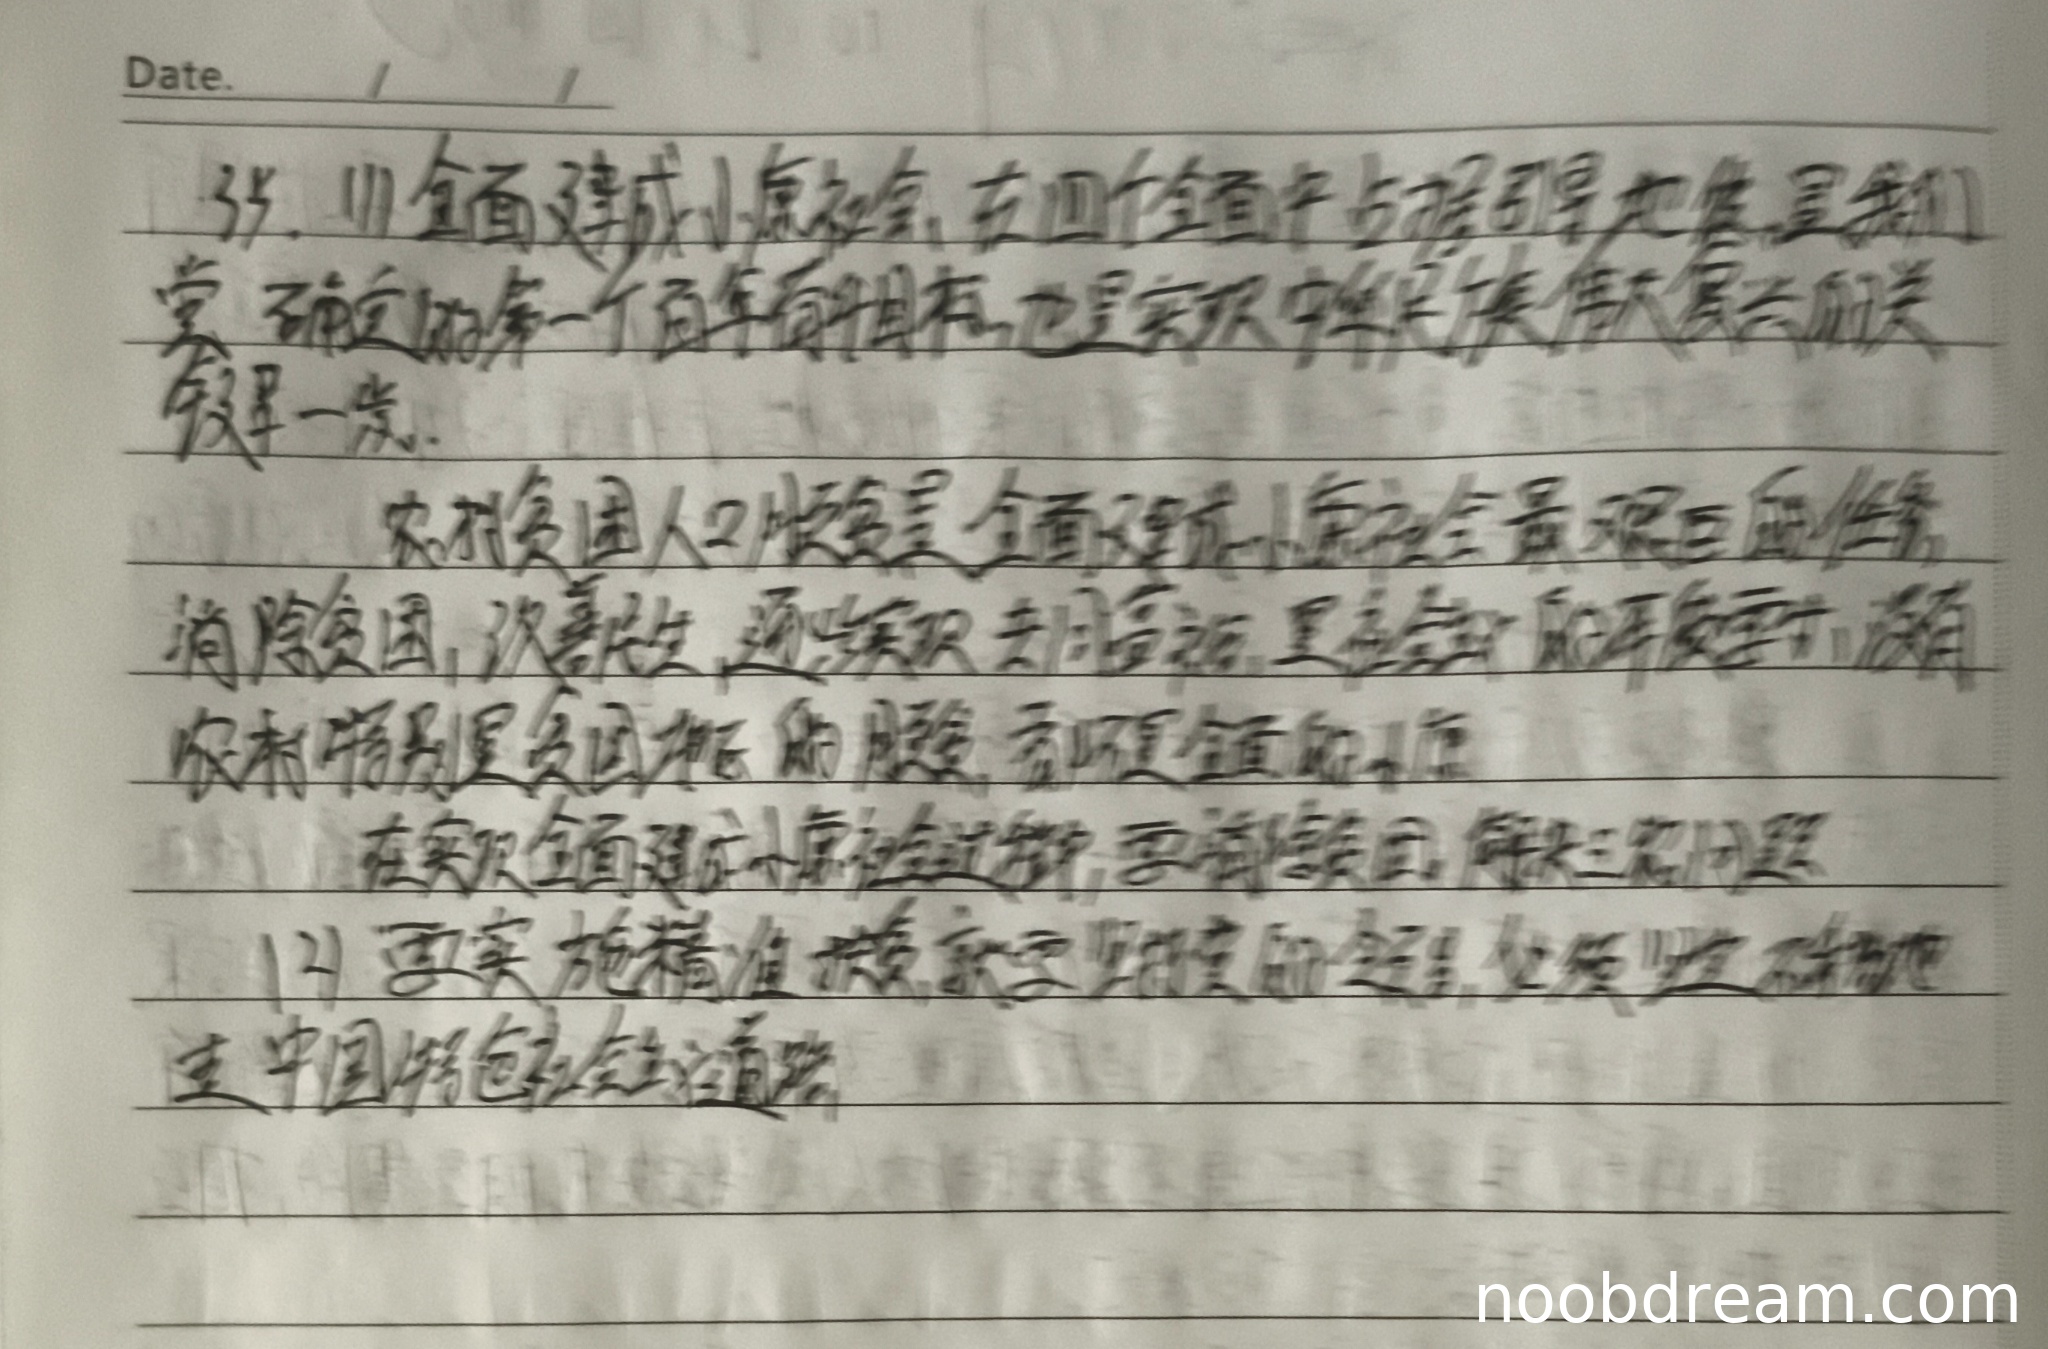 Date. / /
35. (1) 全面建成小康社会, 在四个全面中占据引导地位, 是我们
党 确定的第一个百年奋斗目标, 也是实现中华民族伟大复兴的关
键一步.
农村贫困人口脱贫是全面建成小康社会最艰巨的任务,
消除贫困, 改善民生, 逐步实现共同富裕, 是社会主义的本质要求, 没有
农村特别是贫困地区的脱贫, 就不是全面的小康
在实现全面建成小康社会过程中, 要消除贫困, 解决三农问题
(2) 要实施精准扶贫, 就要坚持党的领导, 必须坚定不移地
走中国特色社会主义道路,
noobdream.com